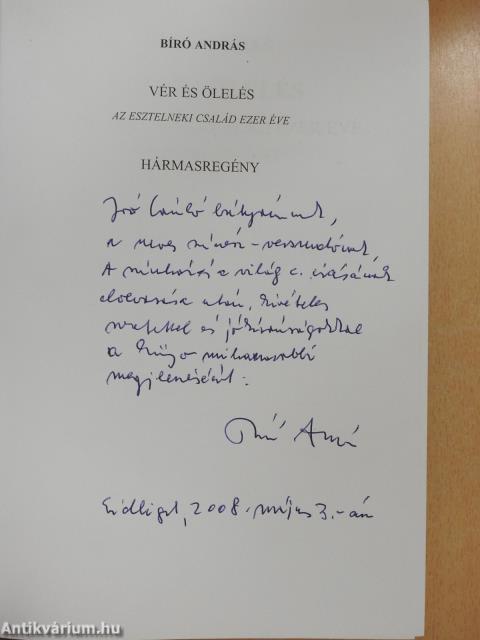 BÍRÓ ANDRÁS
VÉR ÉS ÖLELÉS
AZ ESZTELNEKI CSALÁD EZER ÉVE
HÁRMASREGÉNY
Joó László bátyámnak,
a neves színész-versmondónak,
A színház és a világ c. írásának
elolvasása után, kivételes
szeretettel és jókívánságokkal
a
megjelenéséért.
Bíró András
Érdliget, 2008. május 3.-án
Antikvárium.hu